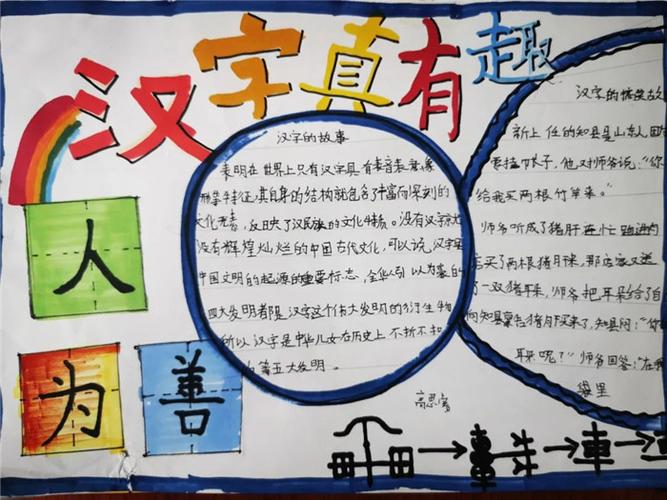 汉字真有趣
汉字的故事
表明在世界上只有汉字具有表音表意象
形等特征,其自身的结构就包含了丰富而深刻的
文化无素,反映了汉民族的文化特质。没有汉字就
没有辉煌灿烂的中国古代文化,可以说,汉字是
中国文明的起源的重要标志,全华人引以为豪的
四大发明都是汉字这个伟大发明的衍生物
所以汉字是中华儿女在历史上不折不扣
第五大发明。
汉字的搞笑古
新上任的知县是山东人,因
要挂帐子,他对师爷说:“你
给我买两根竹竿来。”
师爷听成了猪肝连忙跑进肉
店买了两根猪肝来,那店家又送
了一双猪耳朵,师爷把耳朵给了自
向知县禀告猪肝买来了,知县问:“你
耳朵呢?”师爷回答:“在我
袋里
人
为
善
高思
車